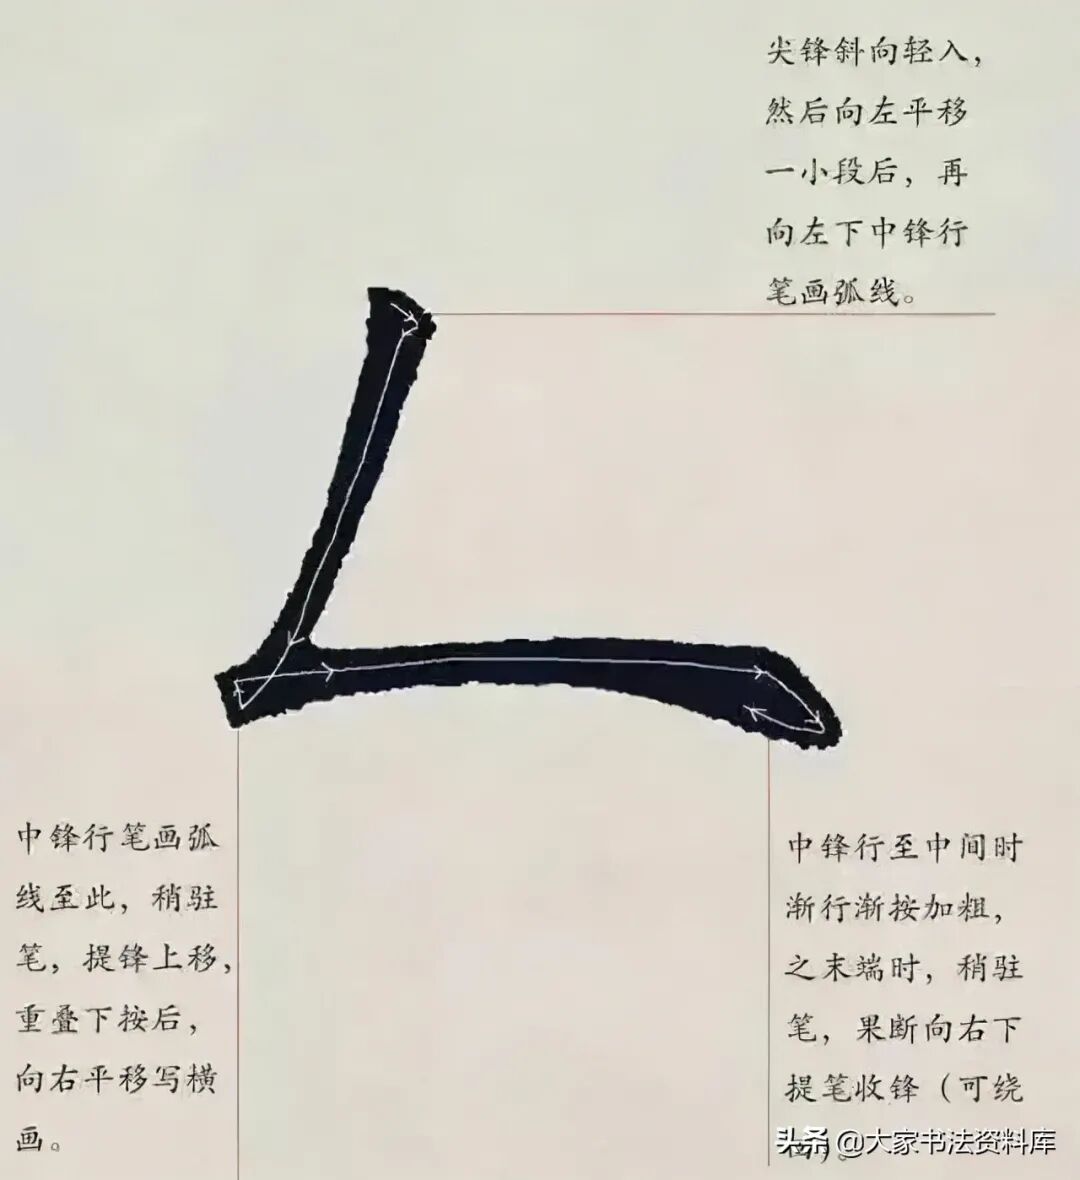 尖锋斜向轻入，
然后向左平移
一小段后，再
向左下中锋行
笔画弧线。
中锋行笔画弧
线至此，稍驻
笔，提锋上移，
重叠下按后，
向右平移写横
画。
中锋行至中间时
渐行渐按加粗，
之末端时，稍驻
笔，果断向右下
提笔收锋（可绕
头条 @大家书法资料库